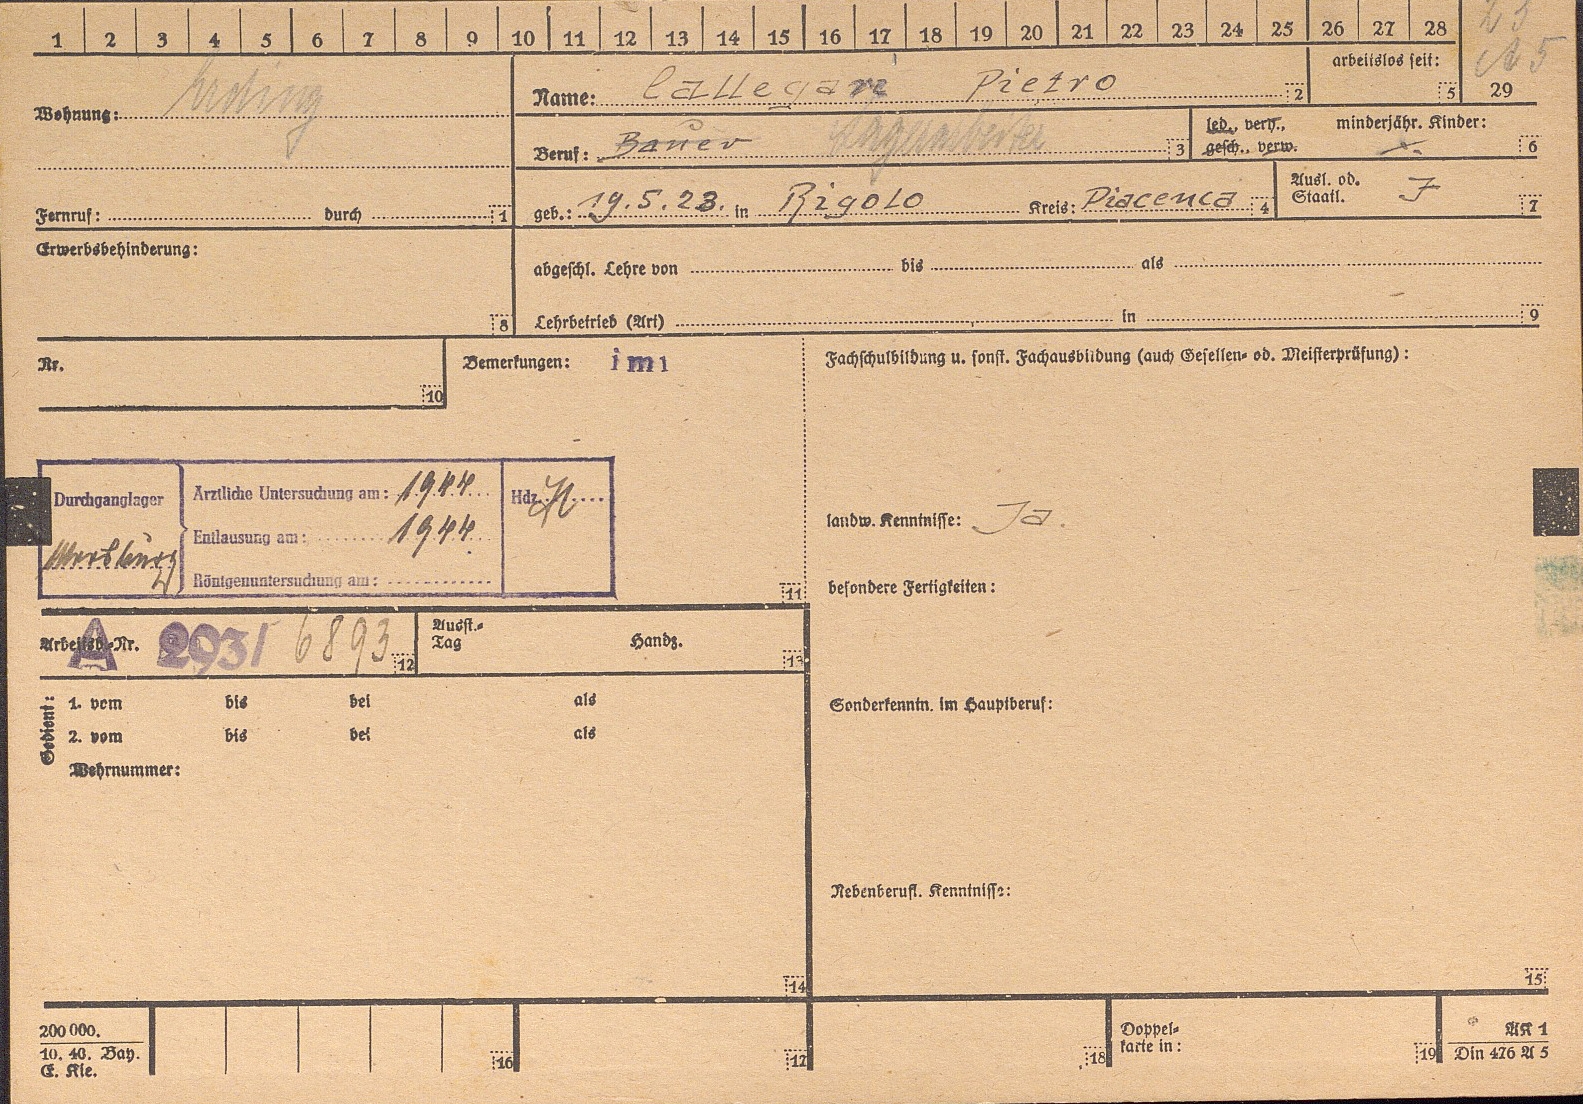 1 2 3 4 5 6 7 8 9 10 11 12 13 14 15 16 17 18 19 20 21 22 23 24 25 26 27 28
Wohnung: Erding
Name: Callegari Pietro 2
arbeitslos seit: 5
29
Beruf: Bauer Lagerarbeiter 3
led., verh., minderjähr. Kinder:
gesch., verw. 6
Fernruf: durch 1
geb.: 19.5.23. in Rigolo Kreis: Piacenca 4
Ausl. od.
Staatl. J 7
Erwerbsbehinderung:
8
abgeschl. Lehre von bis als
Lehrbetrieb (Art) in 9
Nr.
10
Bemerkungen: imi
Fachschulbildung u. sonst. Fachausbildung (auch Gesellen- od. Meisterprüfung):
Durchganglager
Ärztliche Untersuchung am: 1944
Hdz.
Entlausung am: 1944
Röntgenuntersuchung am:
11
landw. Kenntnisse: Ja.
besondere Fertigkeiten:
Arbeitsb.-Nr. A 293/ 6893 12
Ausst.-
Tag Handz. 13
Gedient:
1. vom bis bei als
2. vom bis bei als
Wehrnummer:
14
Sonderkenntn. im Hauptberuf:
Nebenberufl. Kenntnisse:
15
200 000.
10. 40. Bay.
E. Kle.
16
17
18
Doppel-
karte in:
19
AK 1
Din 476 A 5